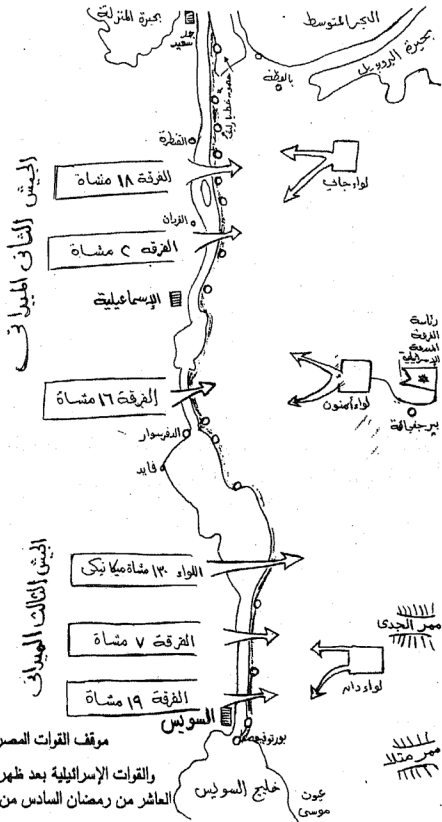 البحر المتوسط
بحيرة المنزلة
بور
سعيد
بحيرة البردويل
بالوظة
القنطرة
الجيش الثانى الميدانى
الفرقة ١٨ مشاة
لواء جابى
الفردان
الفرقة ٢ مشاة
الإسماعيلية
رئاسة
الفرقة
المدرعة
الإسرائيلية
الفرقة ١٦ مشاة
لواء أمنون
بير جفجافة
الدفرسوار
فايد
الجيش الثالث الميدانى
اللواء ١٣٠ مشاة ميكانيكى
ممر الجدى
الفرقة ٧ مشاة
لواء دان
الفرقة ١٩ مشاة
السويس
بورتوفيق
ممر متلا
خليج السويس
عيون
موسى
موقف القوات المصر
والقوات الإسرائيلية بعد ظهر
العاشر من رمضان السادس من